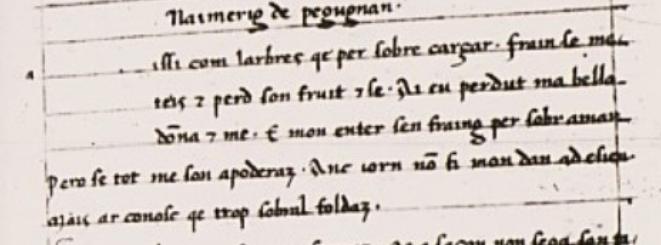 Naimerig de pegugnan.
issi com larbres qe per sobre cargar. frain se me
teis 7 perd son fruit 7 se. Ai eu perdut ma bella
dōna 7 me. E mon enter sen fraing per sobr aman
Pero se tot me son apoderaz. Anc iorn nō fi mon dan ad
aiais ar conosc qe trop sobrul foldaz.
non